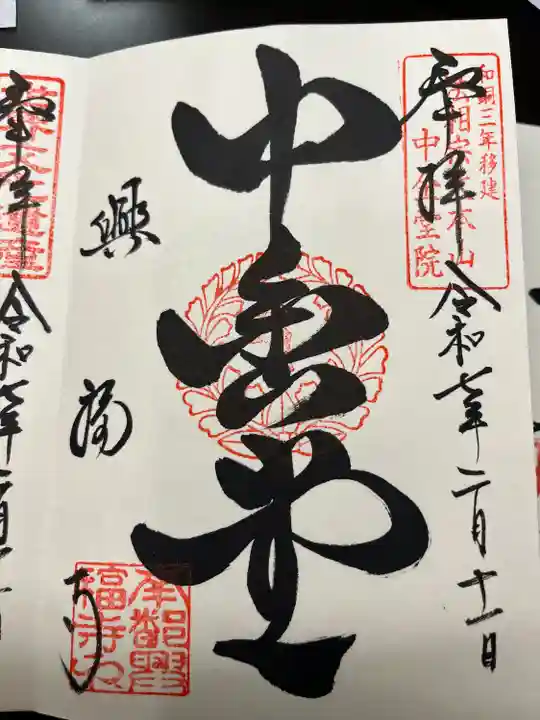 奉拝
令和七年二月十一日
和銅三年移建
法相宗大本山
中金堂院
中金堂
興福寺
奉拝
令和七年二月
世界文遺産